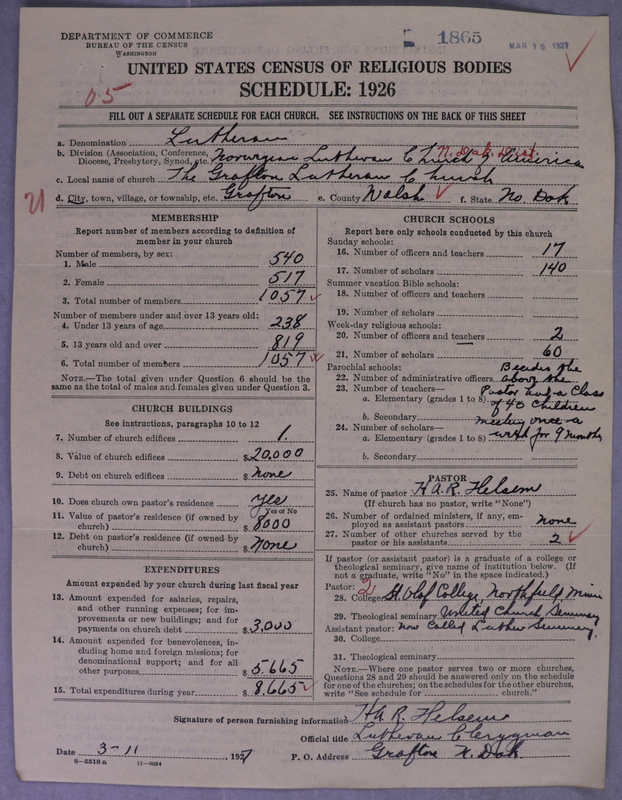 DEPARTMENT OF COMMERCE
BUREAU OF THE CENSUS
WASHINGTON
1865
MAR 15 1927
UNITED STATES CENSUS OF RELIGIOUS BODIES
SCHEDULE: 1926
05
FILL OUT A SEPARATE SCHEDULE FOR EACH CHURCH. SEE INSTRUCTIONS ON THE BACK OF THIS SHEET
a. Denomination Lutheran
b. Division (Association, Conference, Diocese, Presbytery, Synod, etc. Norwegian Lutheran Church of America
N. Dak. Dist.
c. Local name of church The Grafton Lutheran Church
21
d. City, town, village, or township, etc. Grafton e. County Walsh f. State No. Dak
MEMBERSHIP
Report number of members according to definition of
member in your church
Number of members, by sex:
1. Male 540
2. Female 517
3. Total number of members 1057
Number of members under and over 13 years old:
4. Under 13 years of age 238
5. 13 years old and over 819
6. Total number of members 1057
NOTE.—The total given under Question 6 should be the
same as the total of males and females given under Question 3.
CHURCH BUILDINGS
See instructions, paragraphs 10 to 12
7. Number of church edifices 1.
8. Value of church edifices $20,000
9. Debt on church edifices $ none
10. Does church own pastor's residence yes
Yes or No
11. Value of pastor's residence (if owned by
church) $8000
12. Debt on pastor's residence (if owned by
church) $ none
EXPENDITURES
Amount expended by your church during last fiscal year
13. Amount expended for salaries, repairs,
and other running expenses; for im-
provements or new buildings; and for
payments on church debt $3,000
14. Amount expended for benevolences, in-
cluding home and foreign missions; for
denominational support; and for all
other purposes $5665
15. Total expenditures during year $8,665
CHURCH SCHOOLS
Report here only schools conducted by this church
Sunday schools:
16. Number of officers and teachers 17
17. Number of scholars 140
Summer vacation Bible schools:
18. Number of officers and teachers
19. Number of scholars
Week-day religious schools:
20. Number of officers and teachers 2
21. Number of scholars 60
Parochial schools:
22. Number of administrative officers
23. Number of teachers—
a. Elementary (grades 1 to 8)
b. Secondary
24. Number of scholars—
a. Elementary (grades 1 to 8)
b. Secondary
Besides the
above the
Pastor had a Class
of 40 Children
meeting once a
week for 9 months
PASTOR
25. Name of pastor H.A.R. Helsem
(If church has no pastor, write "None")
26. Number of ordained ministers, if any, em-
ployed as assistant pastors none
27. Number of other churches served by the
pastor or his assistants 2
If pastor (or assistant pastor) is a graduate of a college or
theological seminary, give name of institution below. (If
not a graduate, write "No" in the space indicated.)
Pastor: 2
28. College St Olaf College, Northfield Minn
29. Theological seminary United Church Seminary
Assistant pastor: now Called Luther Seminary.
30. College
31. Theological seminary
NOTE.—Where one pastor serves two or more churches,
Questions 28 and 29 should be answered only on the schedule
for one of the churches; on the schedules for the other churches,
write "See schedule for church."
Signature of person furnishing information H.A.R. Helsem
Official title Lutheran Clergyman
Date 3-11, 1927 P. O. Address Grafton N. Dak.
8-5518 a 11-9054